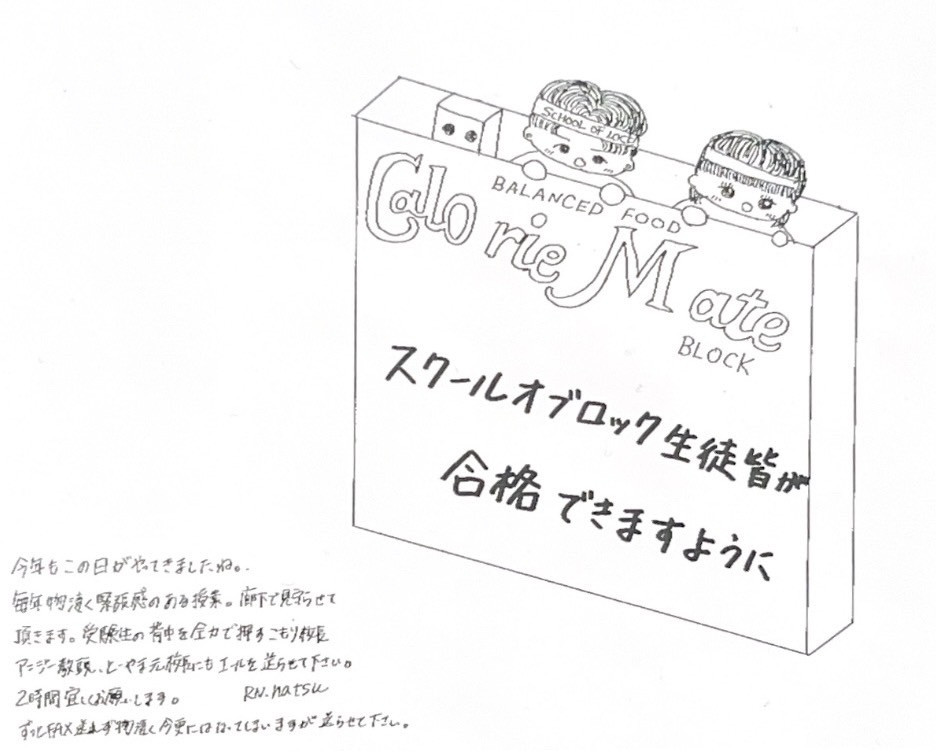 SCHOOL OF LOCK
BALANCED FOOD
Calorie Mate
BLOCK
スクールオブロック生徒皆が
合格できますように
今年もこの日がやってきましたね。
毎年物凄く緊張感のある授業。廊下で見守らせて
頂きます。受験生の背中を全力で押すこもり校長
アンジー教頭、とーやま元校長にもエールを送らせて下さい。
2時間宜しくお願いします。 RN.natsu
ずっとFAX送れず物凄く今更にはなってしまいますが送らせて下さい。